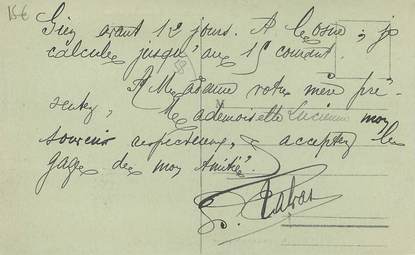 15€
avant 12 jours. A
calcule jusqu'au 15 courant.
A Madame votre mère pré-
sentez, Mademoiselle Lucienne mon
souvenir respectueux, acceptez les
gages de mon Amitié.